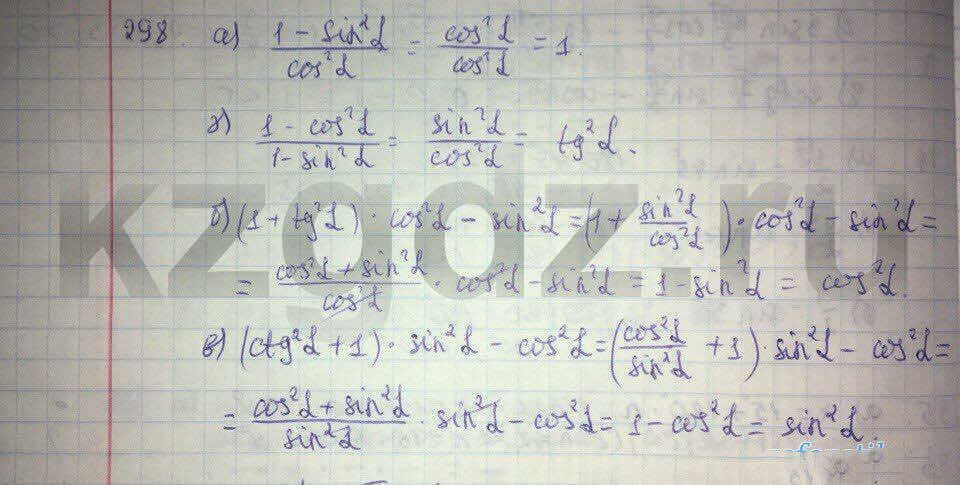 298. а) (1 - sin²α)/(cos²α) = (cos²α)/(cos²α) = 1.
г) (1 - cos²α)/(1 - sin²α) = (sin²α)/(cos²α) = tg²α.
б) (1 + tg²α) · cos²α - sin²α = (1 + (sin²α)/(cos²α)) · cos²α - sin²α =
= (cos²α + sin²α)/(cos²α) · cos²α - sin²α = 1 - sin²α = cos²α.
в) (ctg²α + 1) · sin²α - cos²α = ((cos²α)/(sin²α) + 1) · sin²α - cos²α =
= (cos²α + sin²α)/(sin²α) · sin²α - cos²α = 1 - cos²α = sin²α.
kzgdz.ru